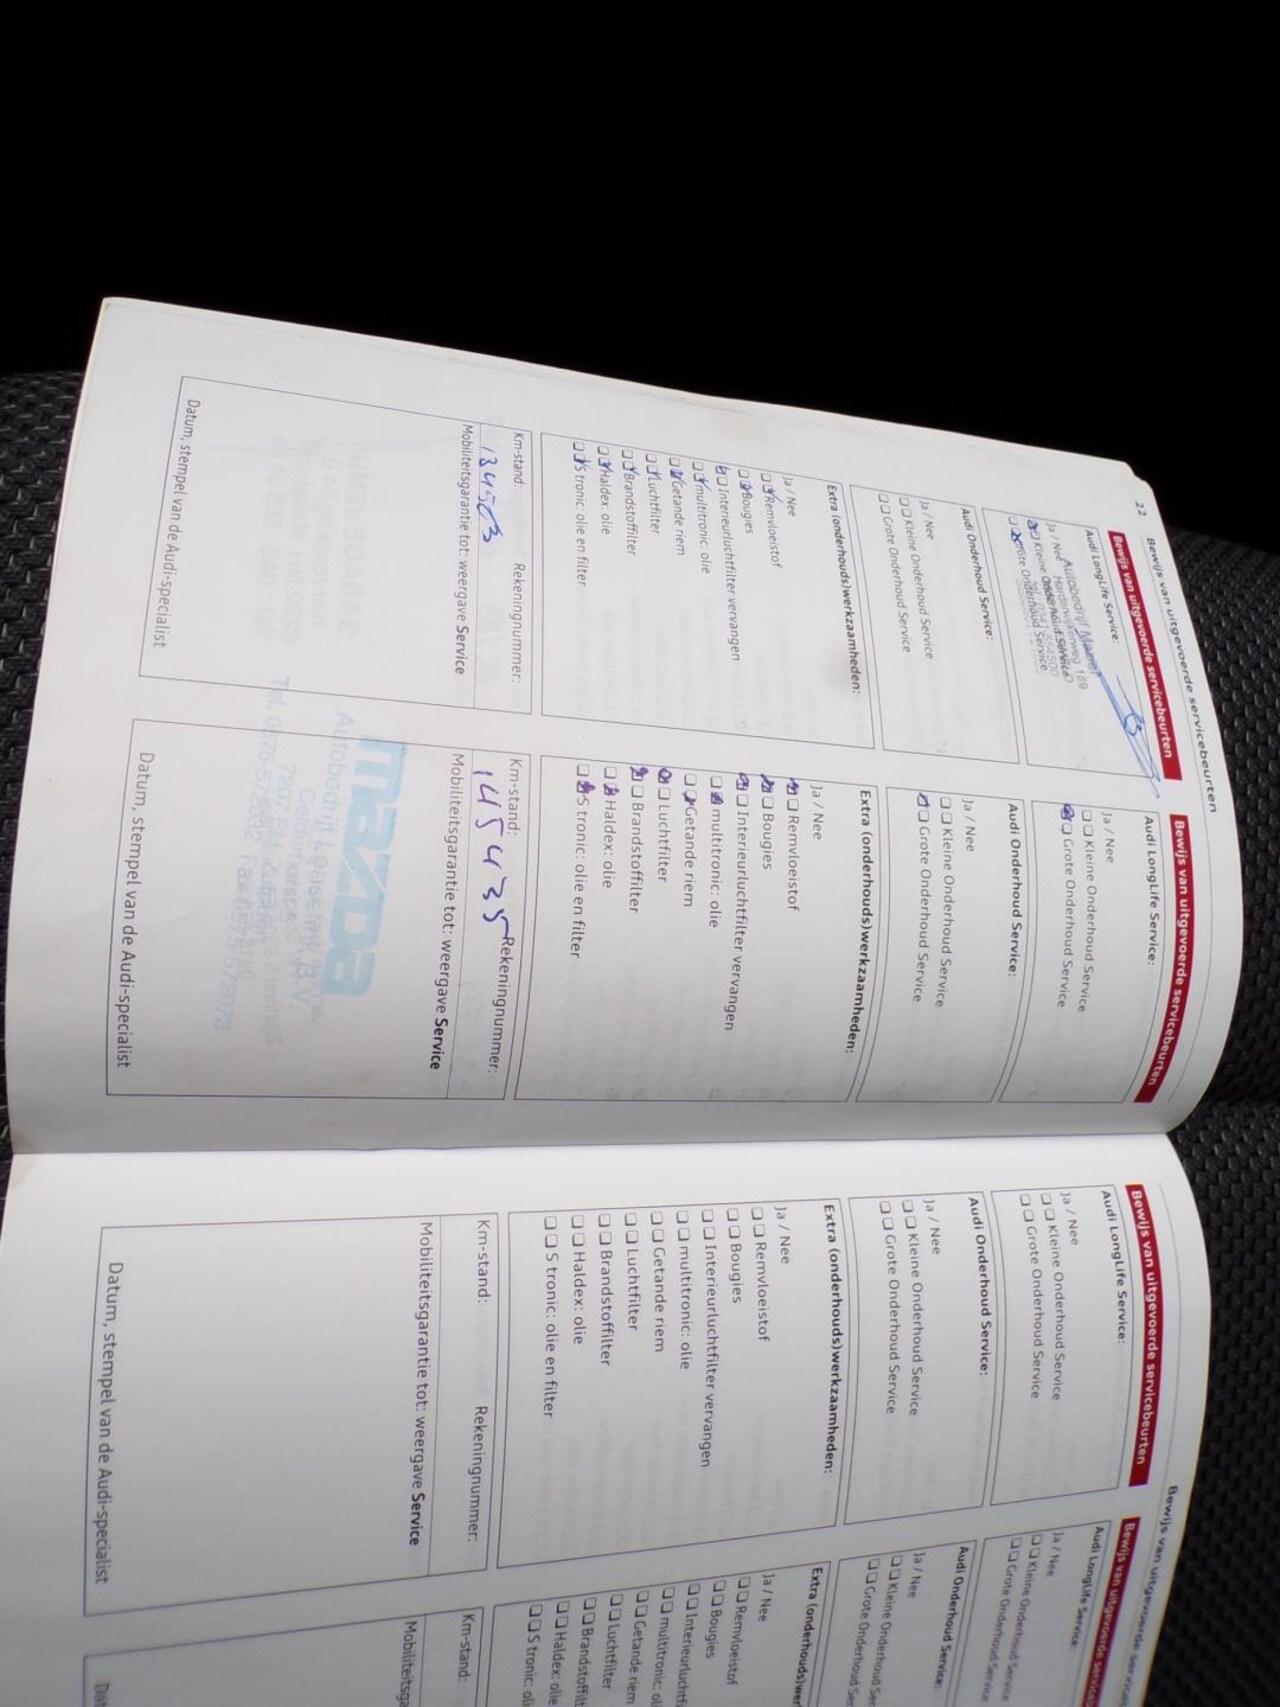 22
Bewijs van uitgevoerde servicebeurten
Bewijs van uitgevoerde servicebeurten
Audi LongLife Service:
Ja / Nee
Kleine Onderhoud Service
Grote Onderhoud Service
Autobedrijf
189
Audi Onderhoud Service:
Ja / Nee
Kleine Onderhoud Service
Grote Onderhoud Service
Extra (onderhouds)werkzaamheden:
Ja / Nee
Remvloeistof
Bougies
Interieurluchtfilter vervangen
multitronic: olie
Getande riem
Luchtfilter
Brandstoffilter
Haldex: olie
S tronic: olie en filter
Km-stand: Rekeningnummer:
134503
Mobiliteitsgarantie tot: weergave Service
Datum, stempel van de Audi-specialist
Bewijs van uitgevoerde servicebeurten
Audi LongLife Service:
Ja / Nee
Kleine Onderhoud Service
Grote Onderhoud Service
Audi Onderhoud Service:
Ja / Nee
Kleine Onderhoud Service
Grote Onderhoud Service
Extra (onderhouds)werkzaamheden:
Ja / Nee
Remvloeistof
Bougies
Interieurluchtfilter vervangen
multitronic: olie
Getande riem
Luchtfilter
Brandstoffilter
Haldex: olie
S tronic: olie en filter
Km-stand: Rekeningnummer:
145435
Mobiliteitsgarantie tot: weergave Service
mazda
Autobedrijf
Datum, stempel van de Audi-specialist
Bewijs van uitgevoerde servicebeurten
Audi LongLife Service:
Ja / Nee
Kleine Onderhoud Service
Grote Onderhoud Service
Audi Onderhoud Service:
Ja / Nee
Kleine Onderhoud Service
Grote Onderhoud Service
Extra (onderhouds)werkzaamheden:
Ja / Nee
Remvloeistof
Bougies
Interieurluchtfilter vervangen
multitronic: olie
Getande riem
Luchtfilter
Brandstoffilter
Haldex: olie
S tronic: olie en filter
Km-stand: Rekeningnummer:
Mobiliteitsgarantie tot: weergave Service
Datum, stempel van de Audi-specialist
Bewijs van uitgevoerde serv
Bewijs van uitgevoerde servic
Audi LongLife Service:
Ja / Nee
Kleine Onderhoud Service
Grote Onderhoud Service
Audi Onderhoud Service:
Ja / Nee
Kleine Onderhoud Se
Grote Onderhoud Ser
Extra (onderhouds)wer
Ja / Nee
Remvloeistof
Bougies
Interieurluchtf
multitronic: ol
Getande riem
Luchtfilter
Brandstoffilt
Haldex: olie
S tronic: oli
Km-stand:
Mobiliteitsga
Da